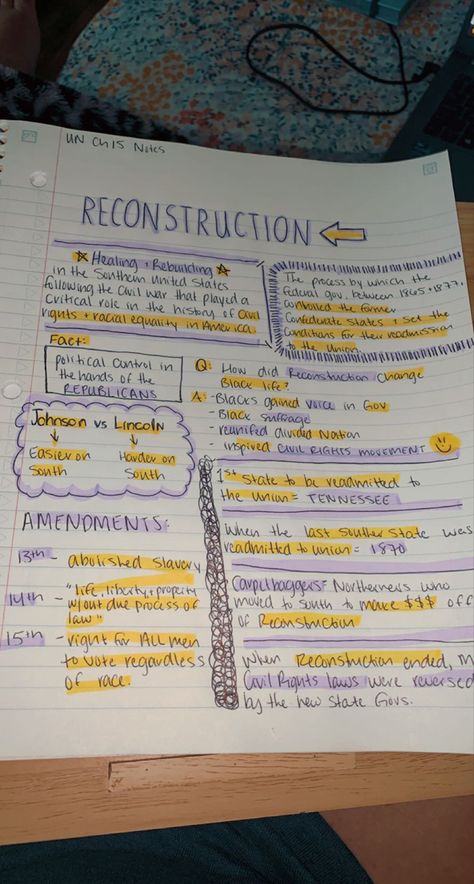 UN Ch15 Notes
RECONSTRUCTION
☆Healing + Rebuilding☆
in the Southern United States
following the Civil War that played a
critical role in the history of Civil
rights + racial equality in America.
The process by which the
Federal gov. between 1865 + 1877.
Controlled the former
Confederate States + Set the
Conditions for their readmission
to the Union.
Fact:
political control in
the hands of the
REPUBLICANS
Q: How did Reconstruction Change
Black life?
A: -Blacks gained voice in Gov
-Black suffrage
-reunified divided Nation
-inspired CIVIL RIGHTS MOVEMENT
Johnson vs Lincoln
Easier on
South
Harder on
South
AMENDMENTS:
13th - abolished slavery
14th - "life, liberty, + property
w/out due process of
law"
15th - right for ALL men
to vote regardless
of race.
1st State to be readmitted to
the union = TENNESSEE
When the last souther State was
readmitted to union = 1870
Carpetbaggers = Northerners who
moved to south to make $$$ off
of Reconstruction
When Reconstruction ended, m
Civil Rights laws were reversed
by the new state Govs.